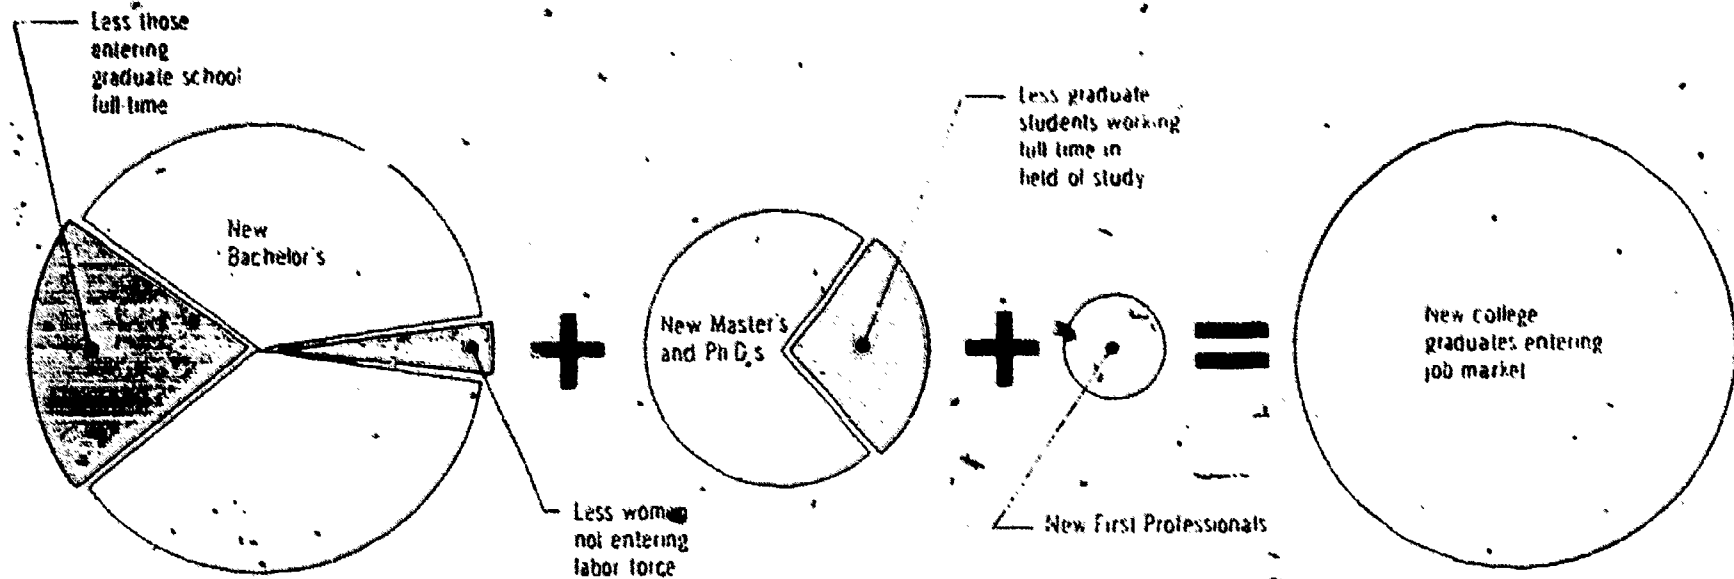 Less those
entering
graduate school
full-time
New
Bachelor's
Less women
not entering
labor force
New Master's
and Ph.D.s
Less graduate
students working
full time in
field of study
New First Professionals
New college
graduates entering
job market